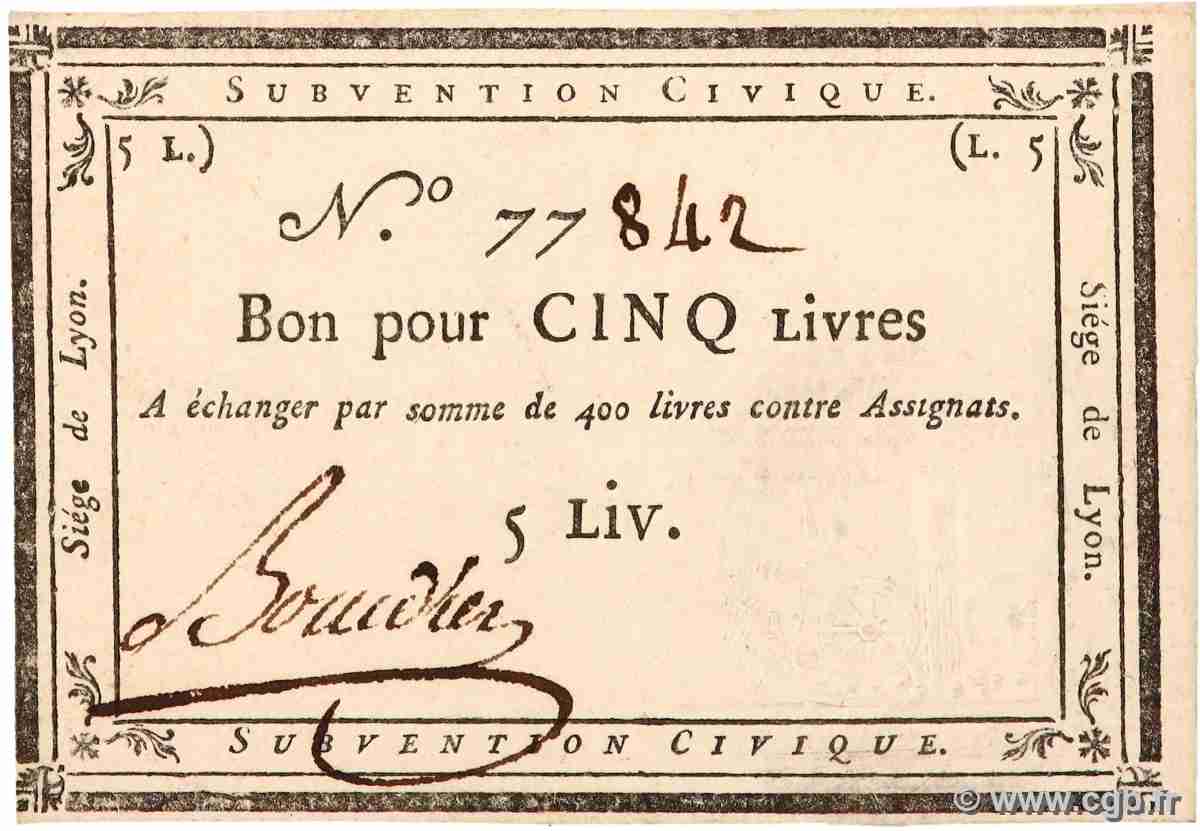 SUBVENTION CIVIQUE.
5 L.)
(L. 5
N.º 77842
Siége de Lyon.
Siége de Lyon.
Bon pour CINQ LIVRES
A échanger par somme de 400 livres contre Assignats.
5 LIV.
SUBVENTION CIVIQUE.
© www.cgb.fr